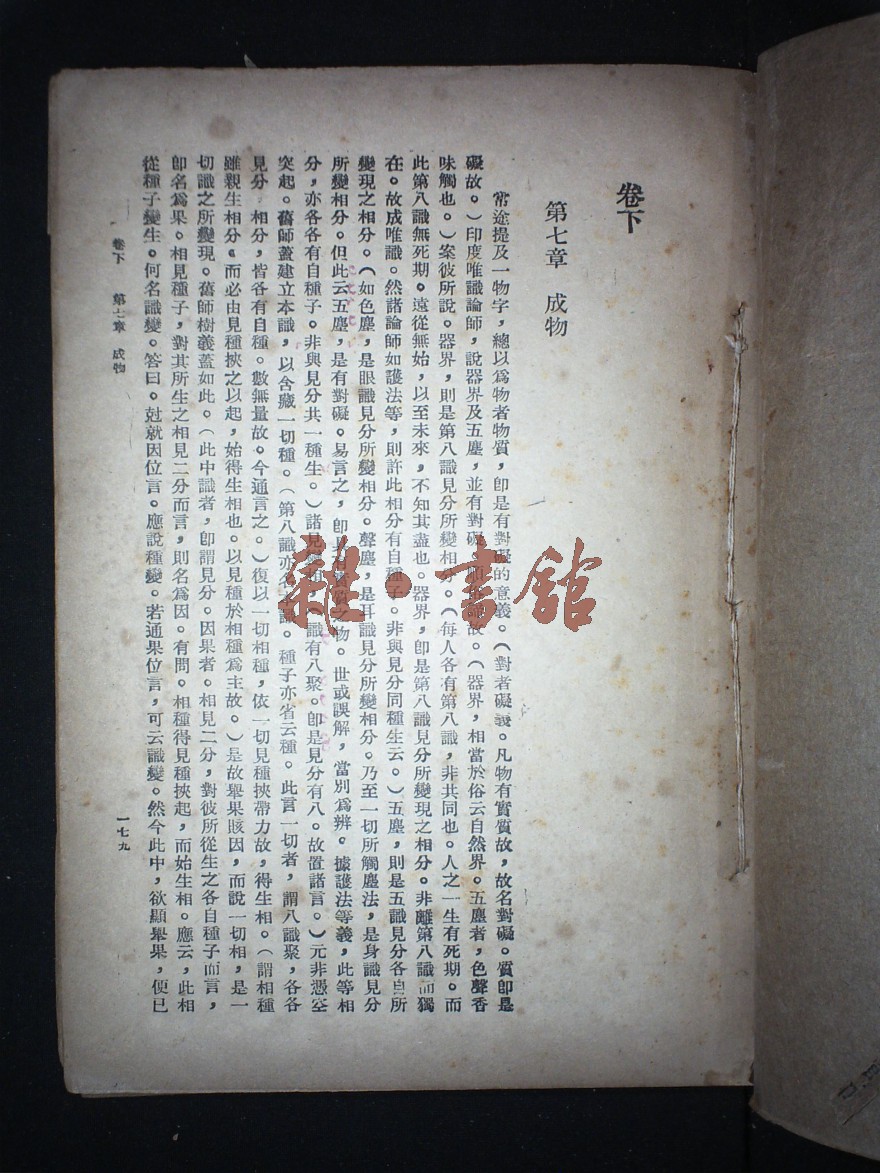 卷下
第七章 成物
常途提及一物字，總以爲物者物質，卽是有對礙的意義。（對者礙義。凡物有實質故，故名對礙。質卽是
礙故。）印度唯識論師，說器界及五塵，並有對礙故。（器界，相當於俗云自然界。五塵者，色聲香
味觸也。）案彼所說。器界，則是第八識見分所變相分。（每人各有第八識，非共同也。人之一生有死期。而
此第八識無死期。遠從無始，以至未來，不知其盡也。器界，卽是第八識見分所變現之相分。非離第八識而獨
在。故成唯識。然諸論師如護法等，則許此相分有自種子。非與見分同種生云。）五塵，則是五識見分各自所
變現之相分。（如色塵，是眼識見分所變相分。聲塵，是耳識見分所變相分。乃至一切所觸塵法，是身識見分
所變相分。但此云五塵，是有對礙。易言之，卽實質之物。世或誤解，當別爲辨。據護法等義，此等相
分，亦各各有自種子。非與見分共一種生。）諸見識有八聚。卽是見分有八。故置諸言。）元非憑空
突起。舊師蓋建立本識，以含藏一切種。（第八識亦名本識。種子亦省云種。此言一切者，謂八識聚，各各
見分 相分，皆各有自種。數無量故。今通言之。）復以一切相種，依一切見種挾帶力故，得生相。（謂相種
雖親生相分。而必由見種挾之以起，始得生相也。以見種於相種爲主故。）是故舉果賅因，而說一切相，是一
切識之所變現。舊師樹義蓋如此。（此中識者，卽謂見分。因果者。相見二分，對彼所從生之各自種子而言，
卽名爲果。相見種子，對其所生之相見二分而言，則名爲因。有問。相種得見種挾起，而始生相。應云，此相
從種子變生。何名識變。答曰。尅就因位言。應說種變。若通果位言，可云識變。然今此中，欲顯舉果，便已
卷下 第七章 成物
一七九
雜·書館